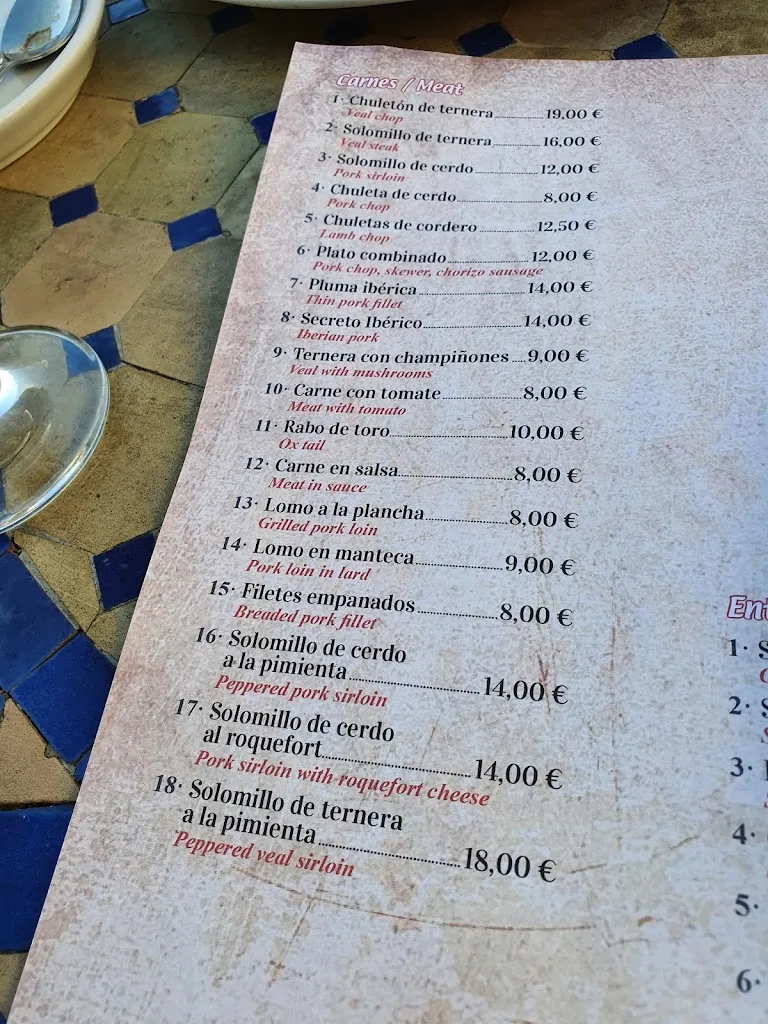 Carnes / Meat
1· Chuletón de ternera 19,00 €
Veal chop
2· Solomillo de ternera 16,00 €
Veal steak
3· Solomillo de cerdo 12,00 €
Pork sirloin
4· Chuleta de cerdo 8,00 €
Pork chop
5· Chuletas de cordero 12,50 €
Lamb chop
6· Plato combinado 12,00 €
Pork chop, skewer, chorizo sausage
7· Pluma ibérica 14,00 €
Thin pork fillet
8· Secreto Ibérico 14,00 €
Iberian pork
9· Ternera con champiñones 9,00 €
Veal with mushrooms
10· Carne con tomate 8,00 €
Meat with tomato
11· Rabo de toro 10,00 €
Ox tail
12· Carne en salsa 8,00 €
Meat in sauce
13· Lomo a la plancha 8,00 €
Grilled pork loin
14· Lomo en manteca 9,00 €
Pork loin in lard
15· Filetes empanados 8,00 €
Breaded pork fillet
16· Solomillo de cerdo
a la pimienta 14,00 €
Peppered pork sirloin
17· Solomillo de cerdo
al roquefort 14,00 €
Pork sirloin with roquefort cheese
18· Solomillo de ternera
a la pimienta 18,00 €
Peppered veal sirloin
1·
2·
3·
4·
5·
6·